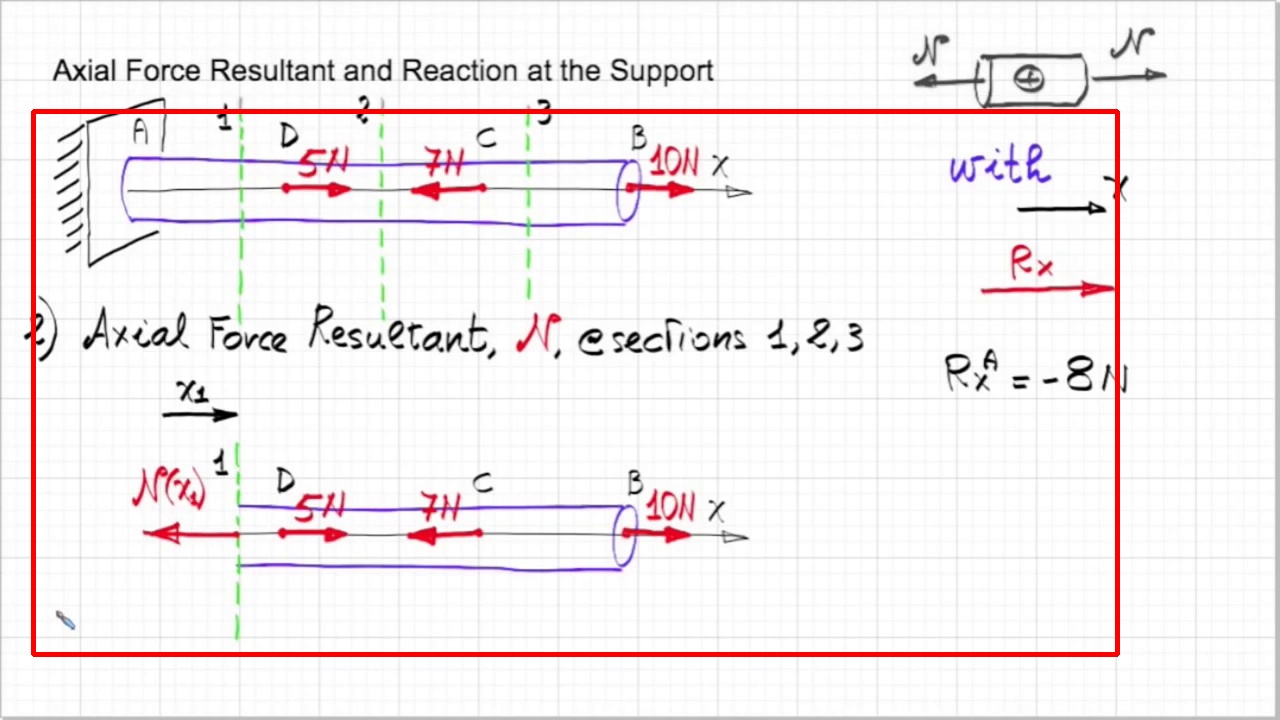 Axial Force Resultant and Reaction at the Support
N N
+
A 1 D 2 C 3 B
5N 7N 10N x
with
x
Rx
2) Axial Force Resultant, N, @sections 1,2,3
RxA = -8N
x1
1 D C B
N(x1) 5N 7N 10N x